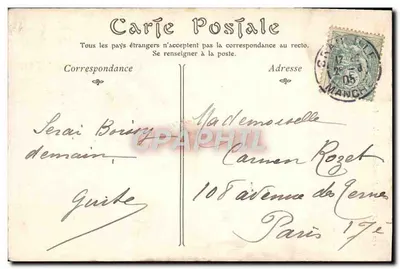 Carte Postale
Tous les pays étrangers n'acceptent pas la correspondance au recto.
Se renseigner à la poste.
Correspondance
Adresse
17
05
MANCHE
Serai Boissy
demain
Guite
Mademoiselle
Carmen Rozet
108 avenue des Ternes
Paris 17è